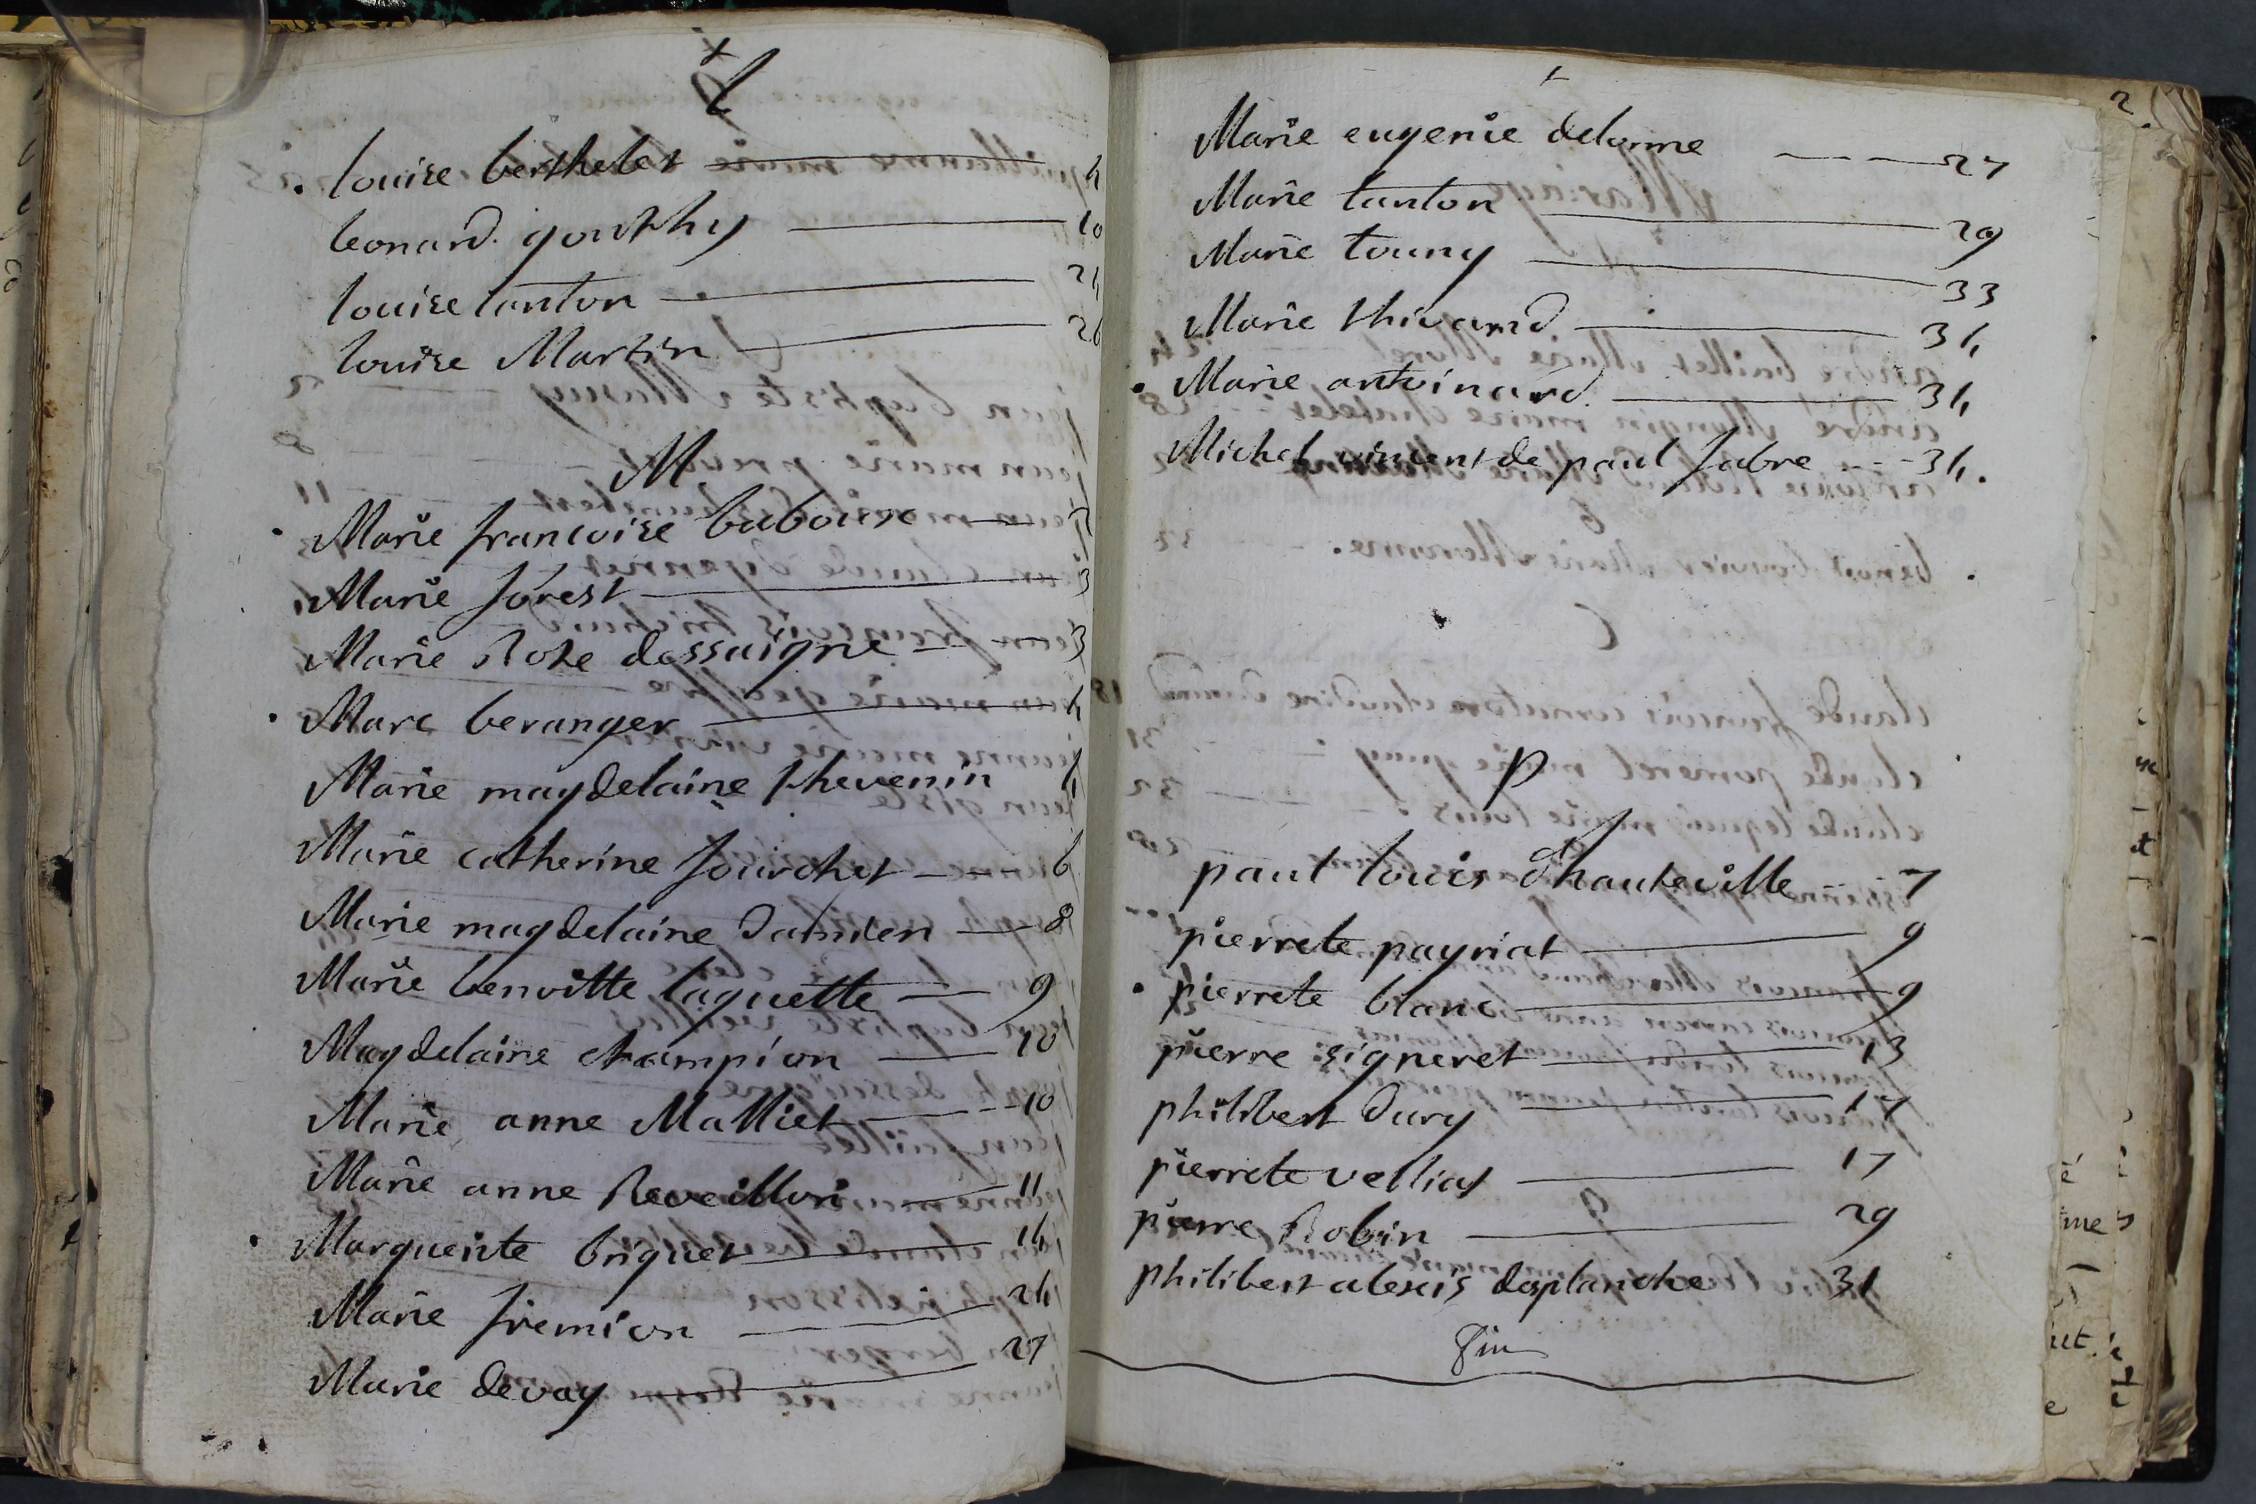 L
louise berthelet 4
leonard gouthy 10
louise tanton 24
louise Martin 26
M
Marie francoise baboux 2
Marie forest 3
Marie Rose dessaigne 3
Marc beranger 4
Marie magdelaine thevenin 4
Marie catherine fourchet 6
Marie magdelaine damien 8
Marie benoitte laquette 9
Magdelaine champion 10
Marie anne Malliet 10
Marie anne Reveillon 11
Marguerite briquet 14
Marie fremion 24
Marie devay 27
2
Marie eugenie delorme 27
Marie tanton 29
Marie touny 33
Marie thivend 34
Marie antoinard 34
Michel vincent de paul fabre 34.
P
paul louis d'hauteville 7
pierrete payriat 9
pierrete blanc 9
pierre signeret 13
philibert dury 17
pierrete velliat 17
pierre Robin 29
philibert alexis desplanche 31
Fin